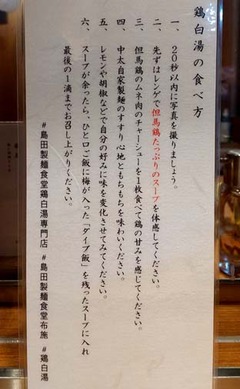 鶏白湯の食べ方
一、20秒以内に写真を撮りましょう。
二、先ずはレンゲで但馬鶏たっぷりのスープを体感してください。
三、但馬鶏のムネ肉のチャーシューを1枚食べて鶏の甘みを感じてください。
四、中太自家製麺のすすり心地ともちもちを味わいください。
五、レモンや胡椒などで自分の好みに味を変化させてみてください。
六、スープが余ったら、ひと口ご飯に梅が入った「ダイブ飯」を残ったスープに入れ
最後の1滴までお召し上がりください。
#島田製麺食堂鶏白湯専門店 #島田製麺食堂布施 #鶏白湯